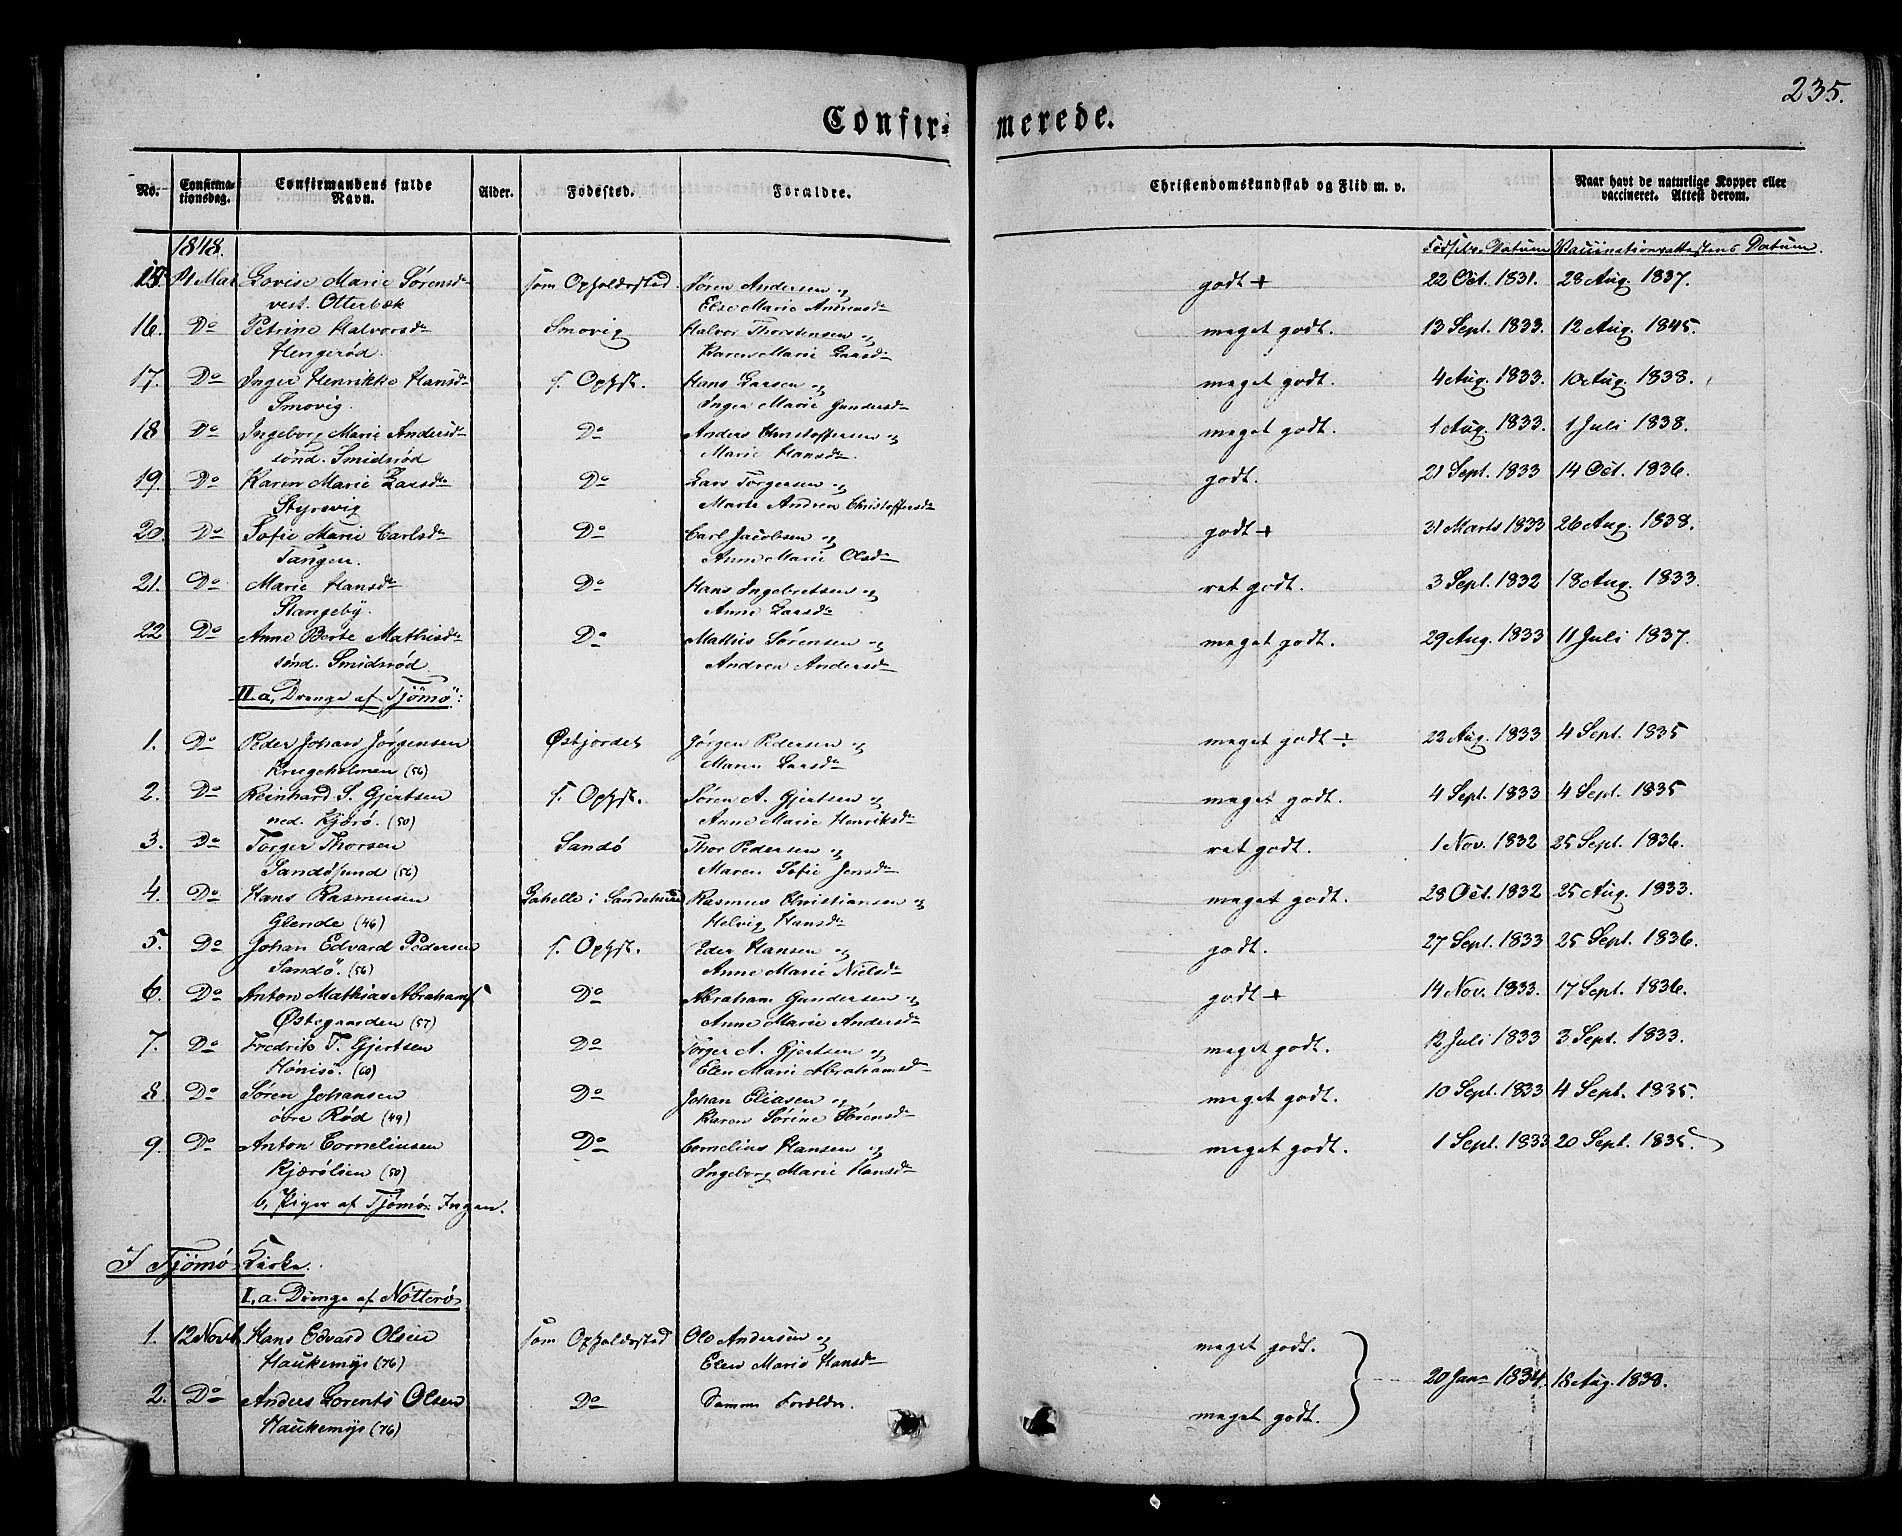 235.
Confirmerede.
No. Confirmationsdag. Confirmandens fulde Navn. Alder. Fødested. Forældre. Christendomskundskab og Flid m. v. Naar havt de naturlige Kopper eller vaccineret. Attest derom.
1848. Fødsels Datum Vaccinationsattestens Datum
15 Lovise Marie Sørensd. som Opholdssted Søren Andersen og godt + 22 Oct. 1831. 28 Aug. 1837.
vest. Otterbæk Else Marie Andreasd.
16. Do Petrine Halvorsdr Smovig Halvor Thorstensen og meget godt. 13 Sept. 1833. 12 Aug. 1845.
Hengerød. Karen Marie Larsdr
17. Do Inger Henrikke Hansd. s. Ophst. Hans Larsen og meget godt. 4 Aug. 1833. 10 Aug. 1838.
Smovig. Inger Marie Gundersdr
18 Do Ingeborg Marie Andersd. Do Anders Christoffersen og meget godt. 1 Aug. 1833. 1 Juli 1838.
sönd. Smidsrød Marie Hansdr.
19. Do Karen Marie Larsdr Do Lars Torgersen og godt. 21 Sept. 1833 14 Oct. 1836.
Styrsvig Marie Andrea Christoffersdr
20. Do Sofie Marie Carlsdr Do Carl Jacobsen og godt + 31 Marts 1833 26 Aug. 1838.
Tangen. Anne Marie Olsdr
21. Do Marie Hansdr Do Hans Ingebretsen og ret godt. 3 Sept. 1832 18 Aug. 1833.
Stangeby. Anne Larsdr
22 Do Anne Berte Mathisdr Do Mathis Sørensen og meget godt. 29 Aug. 1833 11 Juli 1837.
sönd. Smidsrød Andrea Andersdr
II. a, Drenge af Tjömö:
1. Do Peder Johan Jörgensen Østjordet Jörgen Pedersen og meget godt ÷ 22 Aug. 1833 4 Sept. 1835
Krugeholmen (56) Maren Larsdr
2. Do Reinhard S. Gjertsen s. Ophst. Søren A. Gjertsen og meget godt. 4 Sept. 1833 4 Sept. 1835
ned. Kjærö. (50) Anne Marie Henriksdr
3. Do Torger Thorsen Sandö Thor Pedersen og ret godt. 1 Nov. 1832 25 Sept. 1836.
Sandösund (56) Maren Sofie Jensdr
4. Do Hans Rasmusen Rasmus Christiansen og meget godt. 28 Oct. 1832 25 Aug. 1833.
Glende (46) Helvig Hansdr
5. Do Johan Edvard Pedersen s. Ophst. Peder Hansen og godt. 27 Sept. 1833 25 Sept. 1836.
Sandö. (56) Anne Marie Nielsdr
6. Do Anton Mathias Abrahams. Do Abraham Gundersen og godt + 14 Nov. 1833. 17 Sept. 1836.
Østegaarden (57) Anne Marie Andersdr
7. Do Fredrik T. Gjertsen Do Torger A. Gjertsen og meget godt. 12 Juli 1833 3 Sept. 1833.
Hönisö. (60) Elen Marie Abrahamsdr
8 Do Søren Johansen Do Johan Eliasen og meget godt. 10 Sept. 1833 4 Sept. 1835.
övre Röd (49) Karen Sørine Sørensdr
9. Do Anton Corneliusen Do Cornelius Hansen og meget godt. 1 Sept. 1833 20 Sept. 1835.
Kjærölien (50) Ingeborg Marie Hansdr
b, Piger af Tjömö: Ingen.
I Tjömö Kirke.
I. a. Drenge af Nötterö
1. 12 Novb. Hans Edvard Olsen som Opholdssted Ole Andersen og meget godt.
Haukemyr (76) Elen Marie Hansdr
20 Janr 1834. 18 Aug. 1838.
2. Do Anders Lorents Olsen Do Samme Forældre. meget godt.
Haukemyr (76)